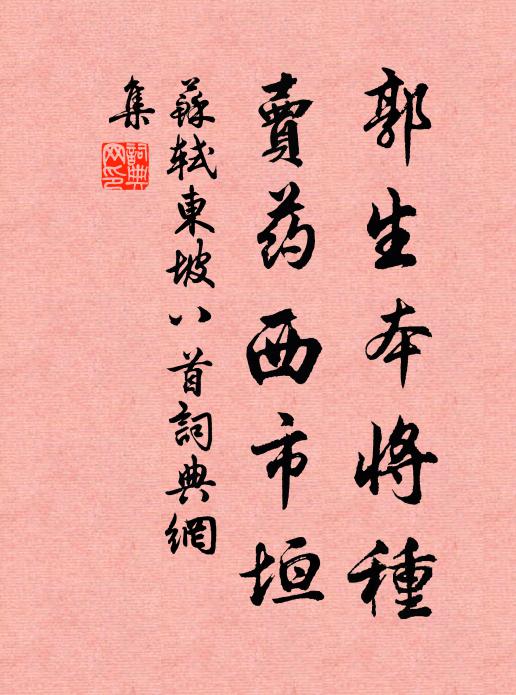 郭生本将種
賣药西市垣
蘇軾東坡八首詞典網
集
詞典网印